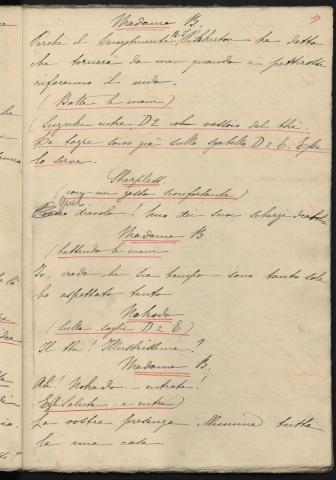 Madame B.
Perché il luogotenente B. F. Pinkerton ha detto
che tornerà da me quando i pettirossi
rifaranno il nido.
(Batte le mani)
(Suzuki entra D2 col vassoio del thè.
Le tazze sono già sullo sgabello D2 E. Essa
la serve.
Sharpless
(con un gesto sconfortante)
Quel diavolo! Uno dei suoi scherzi
Madame B
battendo le mani
Io, credo che sia tempo - sono tanto sola
ho aspettato tanto
Nakodo
(sulla soglia D2 E)
Il thè! Illustrissima?
Madame B.
Ah! Nakodo - entrate!
Egli saluta e entra)
La vostra presenza illumina tutta
la mia casa.